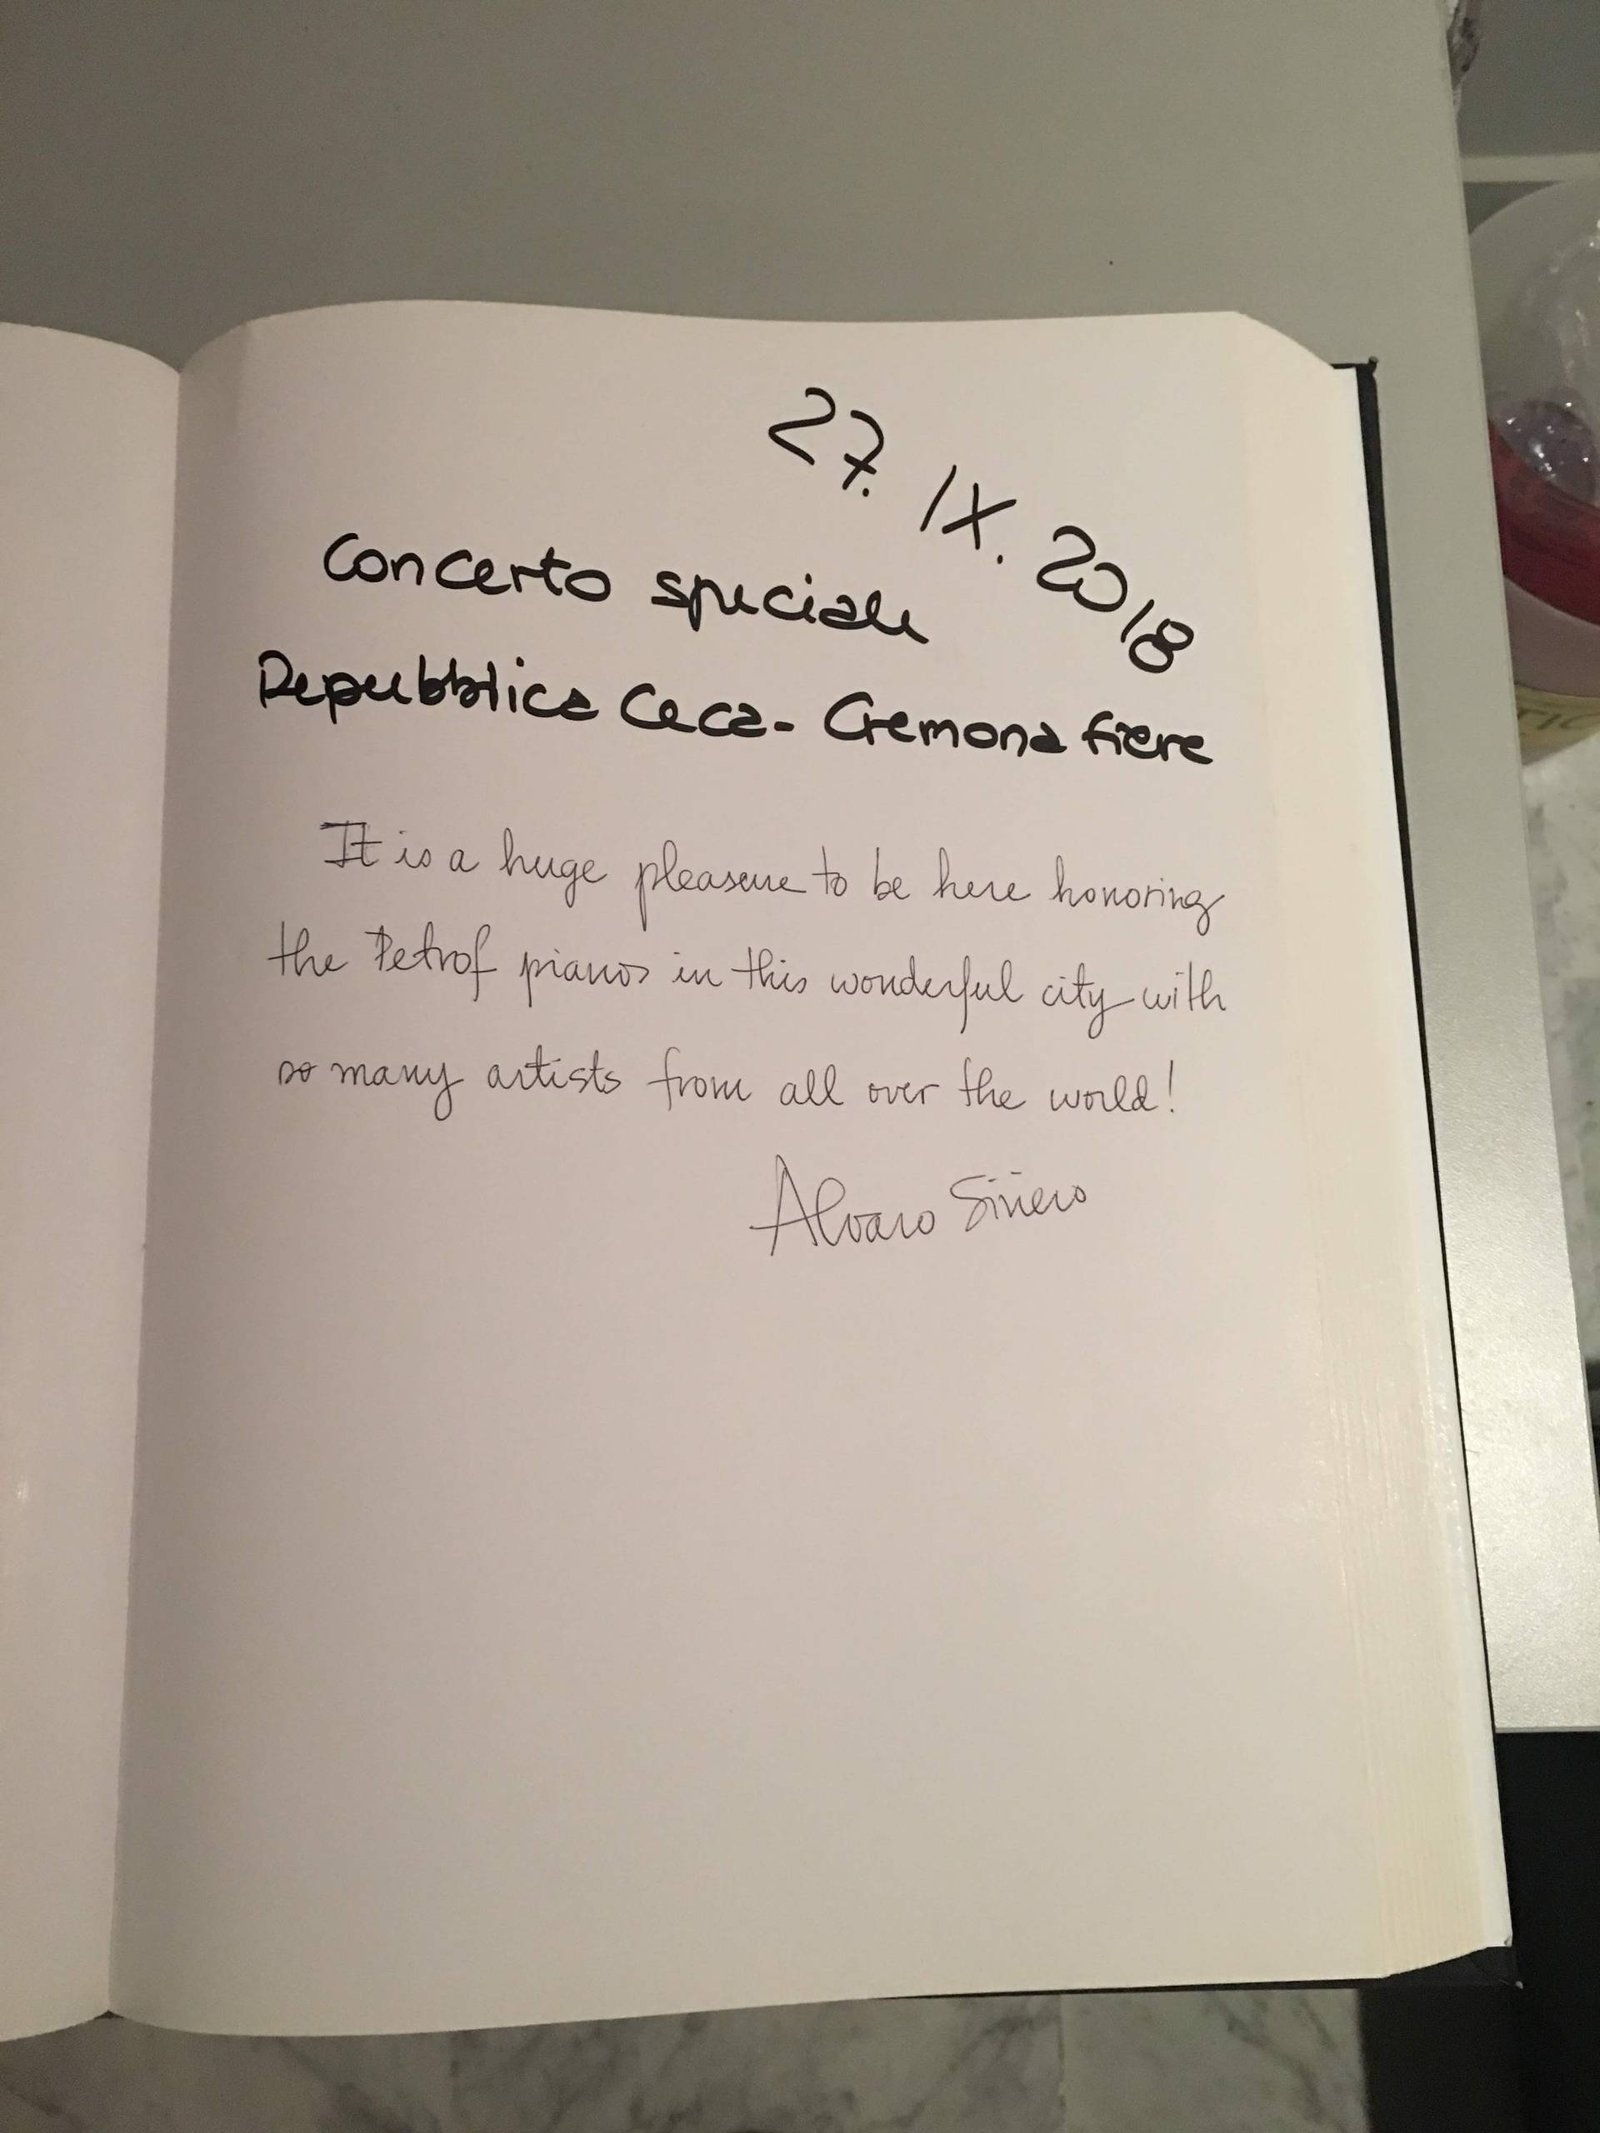 27. IX. 2018
Concerto speciale
Repubblica Ceca - Cremona fiere
It is a huge pleasure to be here honoring
the Petrof pianos in this wonderful city with
so many artists from all over the world!
Alvaro Siviero